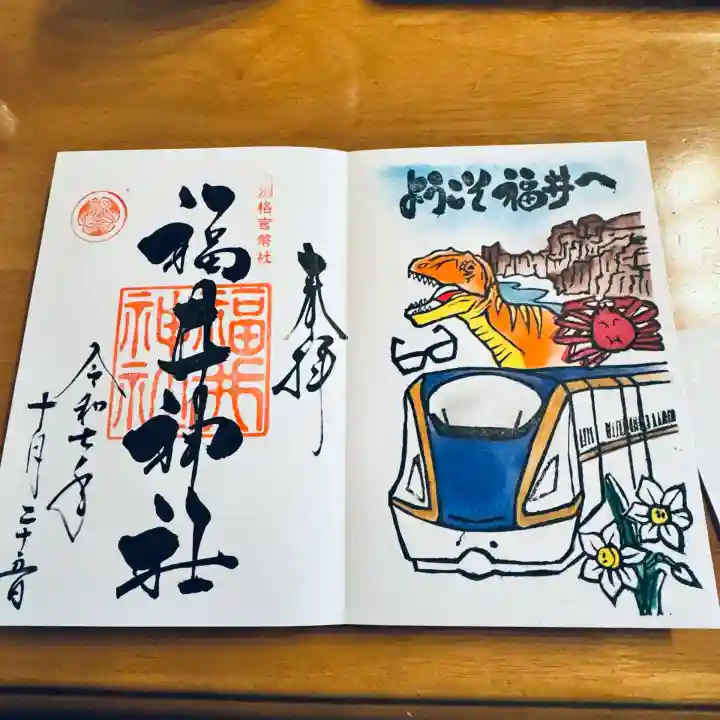 奉拝
別格官幣社
福井神社
福井
神社
令和七年
十月二十五日
ようこそ福井へ